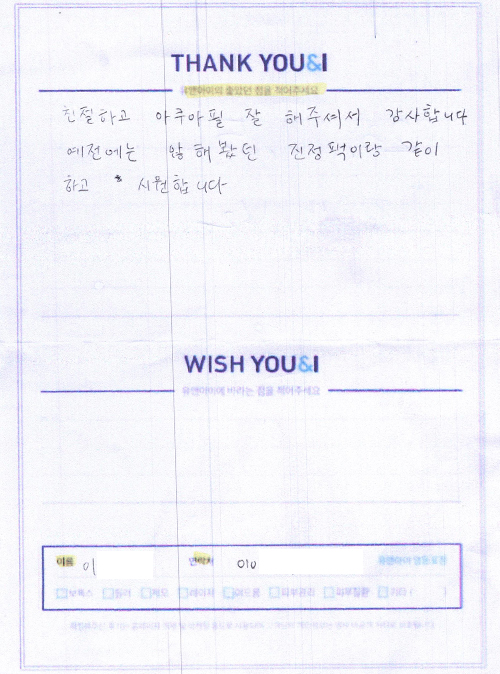 THANK YOU&I
유앤아이의 좋았던 점을 적어주세요
친절하고 아쿠아필 잘 해주셔서 감사합니다
예전에는 않해봤던 진정팩이랑 같이
하고 시원합니다
WISH YOU&I
유앤아이에 바라는 점을 적어주세요
이름 이 연락처 010
보톡스 필러 제모 레이저 여드름 피부관리 피부질환 기타 ( )